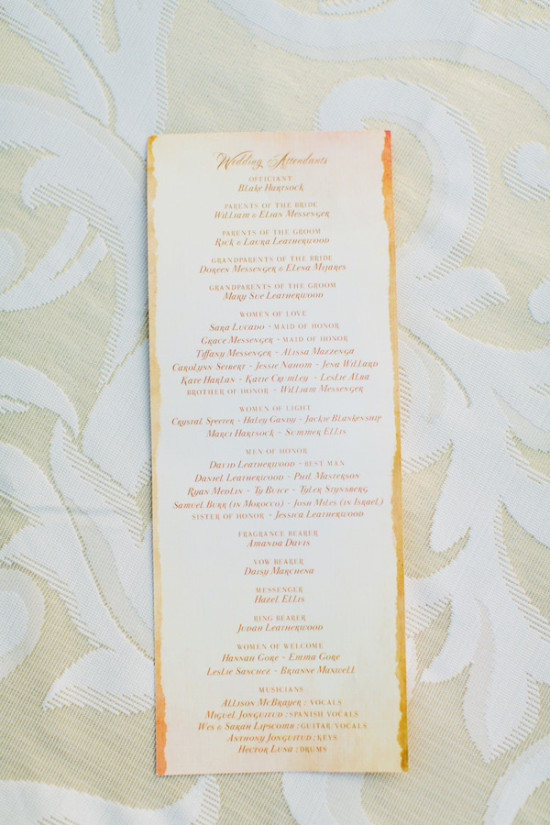 Wedding Attendants
OFFICIANT
Blake Hartsock
PARENTS OF THE BRIDE
William & Elias Messenger
PARENTS OF THE GROOM
Rick & Laura Leatherwood
GRANDPARENTS OF THE BRIDE
Doreen Messenger & Elesa Mijares
GRANDPARENTS OF THE GROOM
Mary Sue Leatherwood
WOMEN OF LOVE
Sara Lucado - MAID OF HONOR
Grace Messenger - MAID OF HONOR
Tiffany Messenger - Alissa Mazzenga
Carolynn Seibert - Jessie Nahom - Jesa Willard
Kate Harlan - Katie Crumley - Leslie Alba
BROTHER OF HONOR - William Messenger
WOMEN OF LIGHT
Crystal Specter - Haley Gundy - Jackie Blankenship
Marci Hartsock - Summer Ellis
MEN OF HONOR
David Leatherwood - BEST MAN
Daniel Leatherwood - Phil Masterson
Ryan Medlin - Ty Buice - Tyler Sponsberg
Samuel Burr (in Morocco) - Josh Miles (in Israel)
SISTER OF HONOR - Jessica Leatherwood
FRAGRANCE BEARER
Amanda Davis
VOW BEARER
Daisy Marchena
MESSENGER
Hazel Ellis
RING BEARER
Judah Leatherwood
WOMEN OF WELCOME
Hannah Gore - Emma Gore
Leslie Sanchez - Brianne Maxwell
MUSICIANS
Allison McBrayer : VOCALS
Miguel Jonguitud : SPANISH VOCALS
Wes & Sarah Lipscomb : GUITAR/VOCALS
Anthony Jonguitud : KEYS
Hector Luna : DRUMS